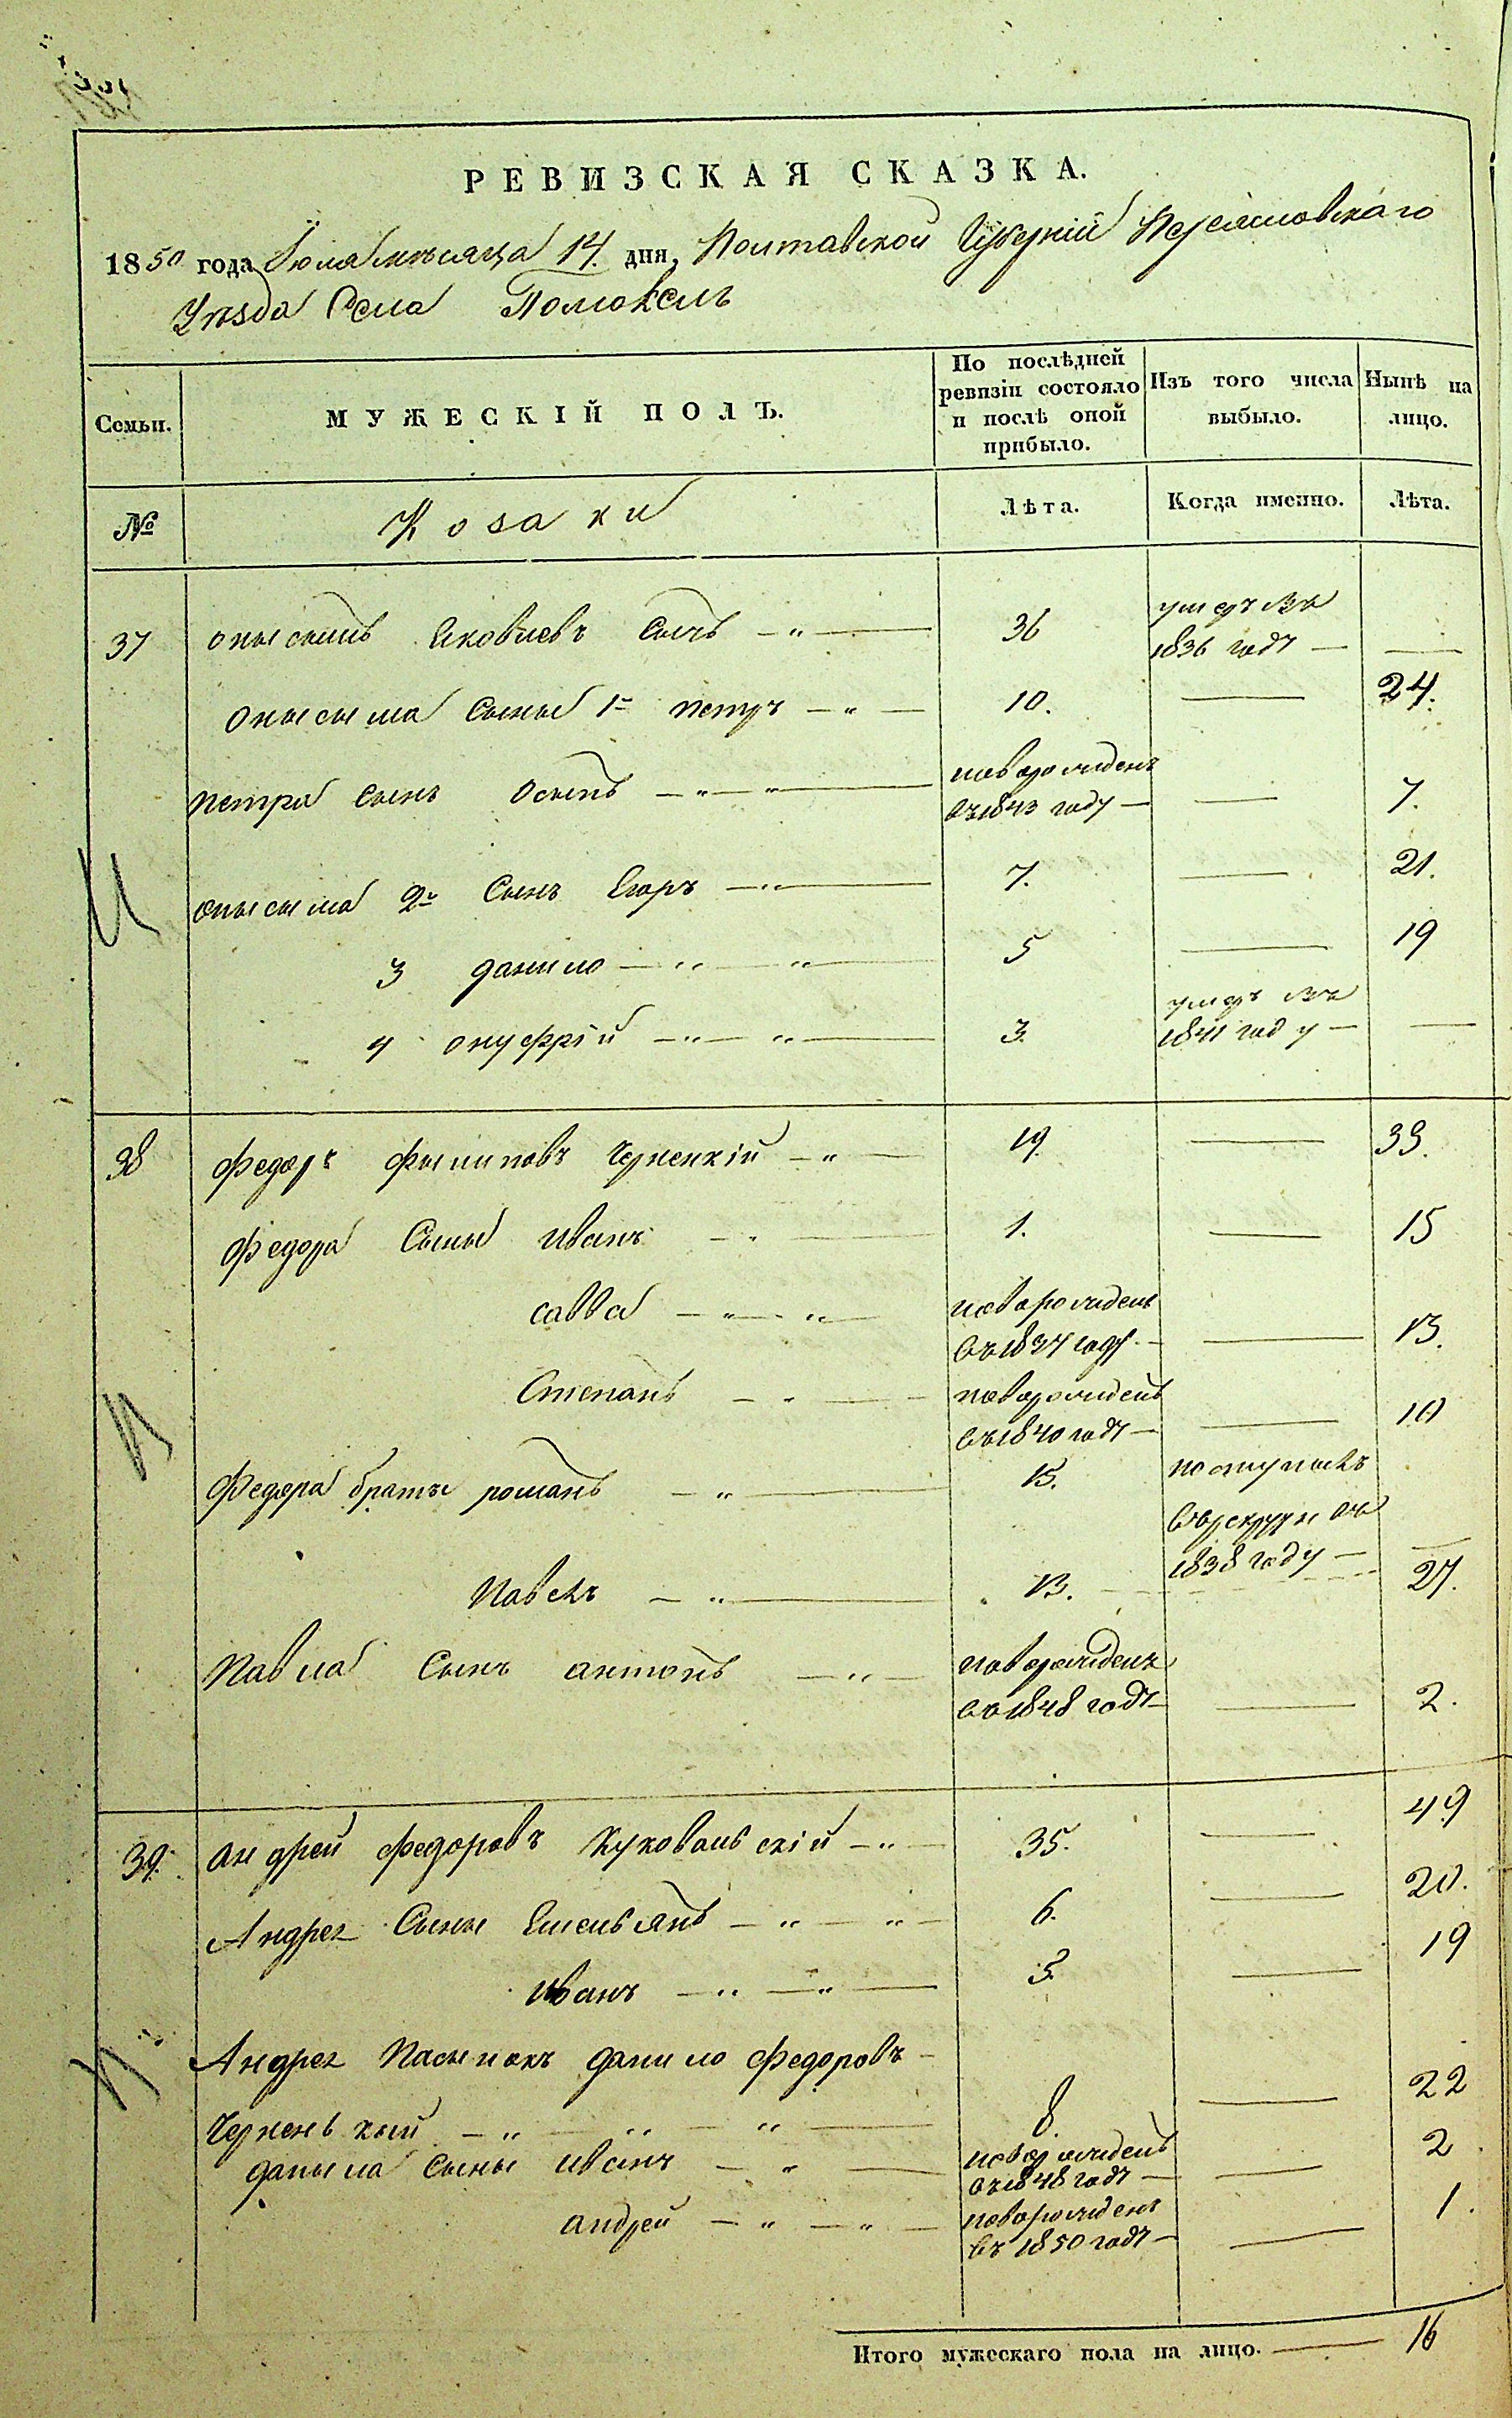 РЕВИЗСКАЯ СКАЗКА.
1850 года Июля месяца 14. дня, Полтавской Губернїи Переяславскаго
Уѣзда Села Помоклъ
Семьи.
МУЖЕСКІЙ ПОЛЪ.
По послѣдней ревизіи состояло и послѣ оной прибыло.
Изъ того числа выбыло.
Нынѣ на лицо.
№
Козаки
Лѣта.
Когда именно.
Лѣта.
37 Онысымъ Яковлевъ Сынъ 36 умеръ въ 1836 году —
Онысыма Сыны 1й петръ 10. — 24.
петра сынъ Осыпъ новорожденъ въ 1843 году — 7.
онысыма 2й Сынъ Егоръ 7. — 21.
3 данило 5 — 19
4 онуфрїй 3. умеръ въ 1841 году —
38 федоръ филиповъ Черненкїй 19. — 33.
федора Сыны иванъ 1. — 15
савва новорожденъ въ 1837 году — 13.
Степанъ новорожденъ въ 1840 году — 10
федора братъи романъ 15. поступилъ въ рекруты въ 1838 году —
павелъ 13. — 27.
павла Сынъ антонъ новорожденъ въ 1848 году — 2.
39. андрей федоровъ Куковальскїй 35. — 49
Андрея Сыны Емельянъ 6. — 20.
иванъ 5. — 19
Андрея пасынокъ данило федоровъ
Черненькый 8. — 22
даныла сыны иванъ новорожденъ въ 1848 году — 2
андрей новорожденъ въ 1850 году — 1.
Итого мужескаго пола на лицо. — 16